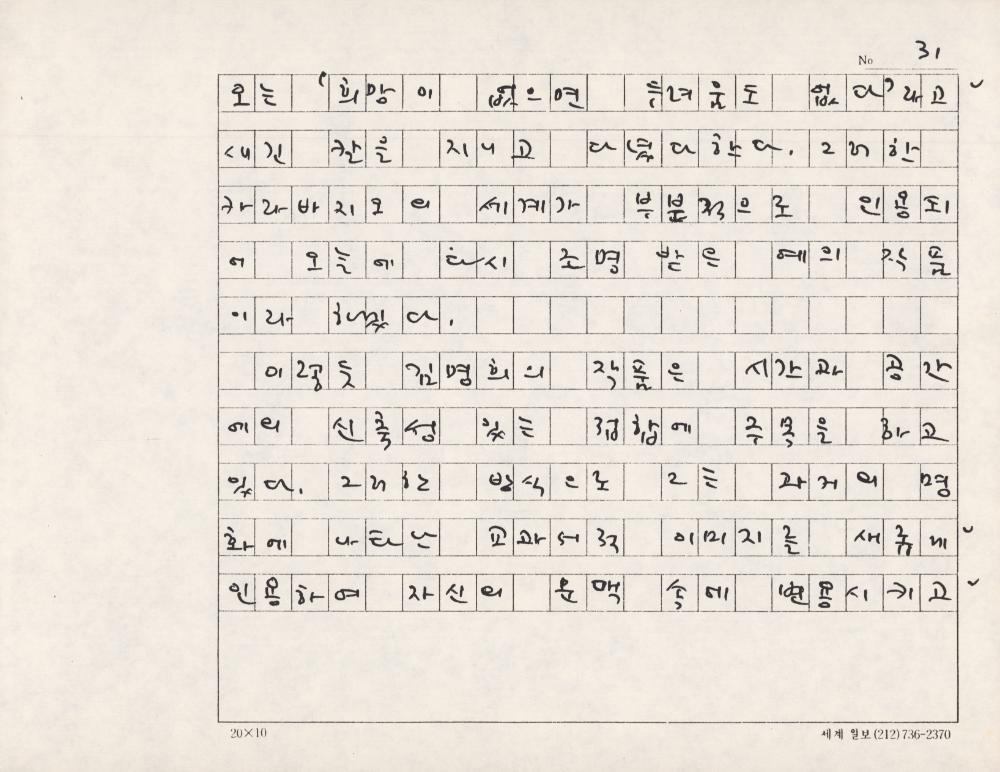 No 31
오는 '희망이 없으면 두려움도 없다'라고
새긴 칼을 지니고 다녔다 한다. 그러한
카라바지오의 세계가 부분적으로 인용되
어 오늘에 다시 조명 받은 예의 작품
이라 하겠다.
이렇듯 김명희의 작품은 시간과 공간
에의 신축성 있는 접합에 주목을 하고
있다. 그러한 방식으로 그는 과거의 명
화에 나타난 교과서적 이미지를 새롭게
인용하여 자신의 문맥 속에 변용시키고
20×10
세계일보(212)736-2370